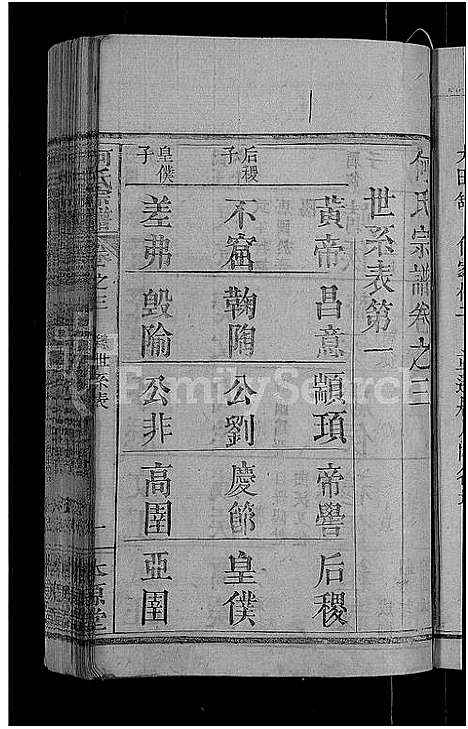 何氏宗譜卷之三
世系表第一
黃帝 昌意 顓頊 帝嚳 后稷
后稷子
不窋 鞠陶 公劉 慶節 皇僕
皇僕子
差弗 毀隃 公非 高圉 亞圉
何氏宗譜 卷之三 世系表 一 本源堂
FamilySearch